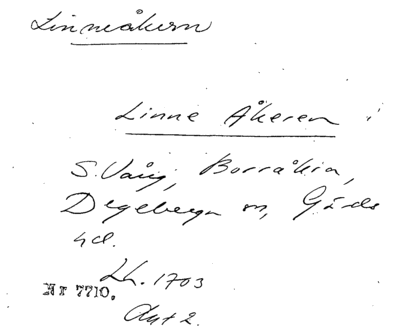 Linneåkern
Linne Åkeren i
S. Vång, Borråkra,
Degeberga sn, Gärds
hd.
Lh. 1703
Nr 7710.
Akt 2.